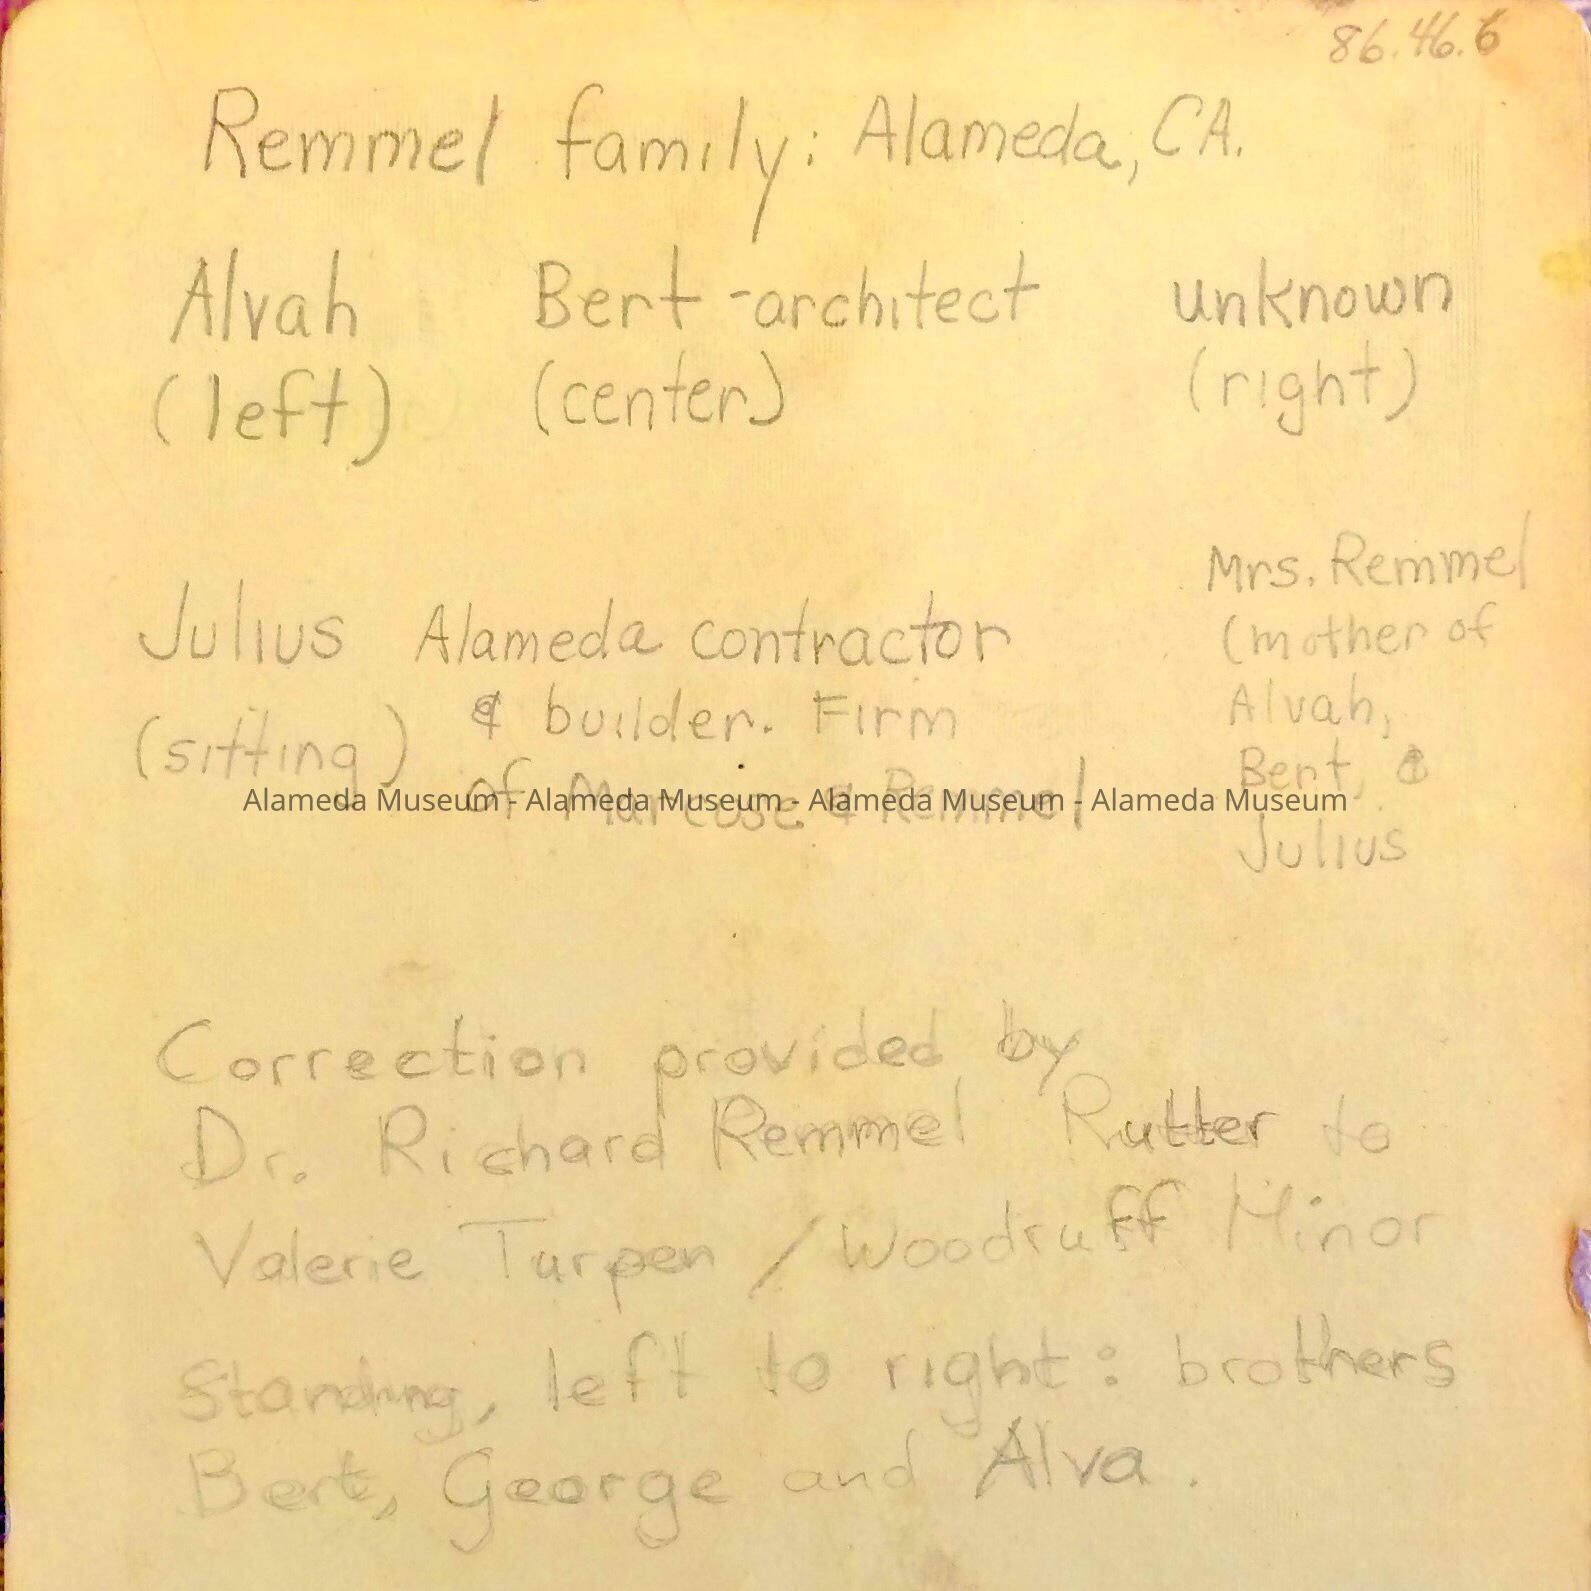 86.46.6
Remmel family: Alameda, CA.
Alvah Bert - architect unknown
(left) (center) (right)
Julius Alameda contractor
(sitting) & builder. Firm
of Marcuse & Remmel
Mrs. Remmel
(mother of
Alvah,
Bert, &
Julius
Alameda Museum - Alameda Museum - Alameda Museum - Alameda Museum
Correction provided by
Dr. Richard Remmel Rutter to
Valerie Turpen / Woodruff Minor
Standing, left to right: brothers
Bert, George and Alva.